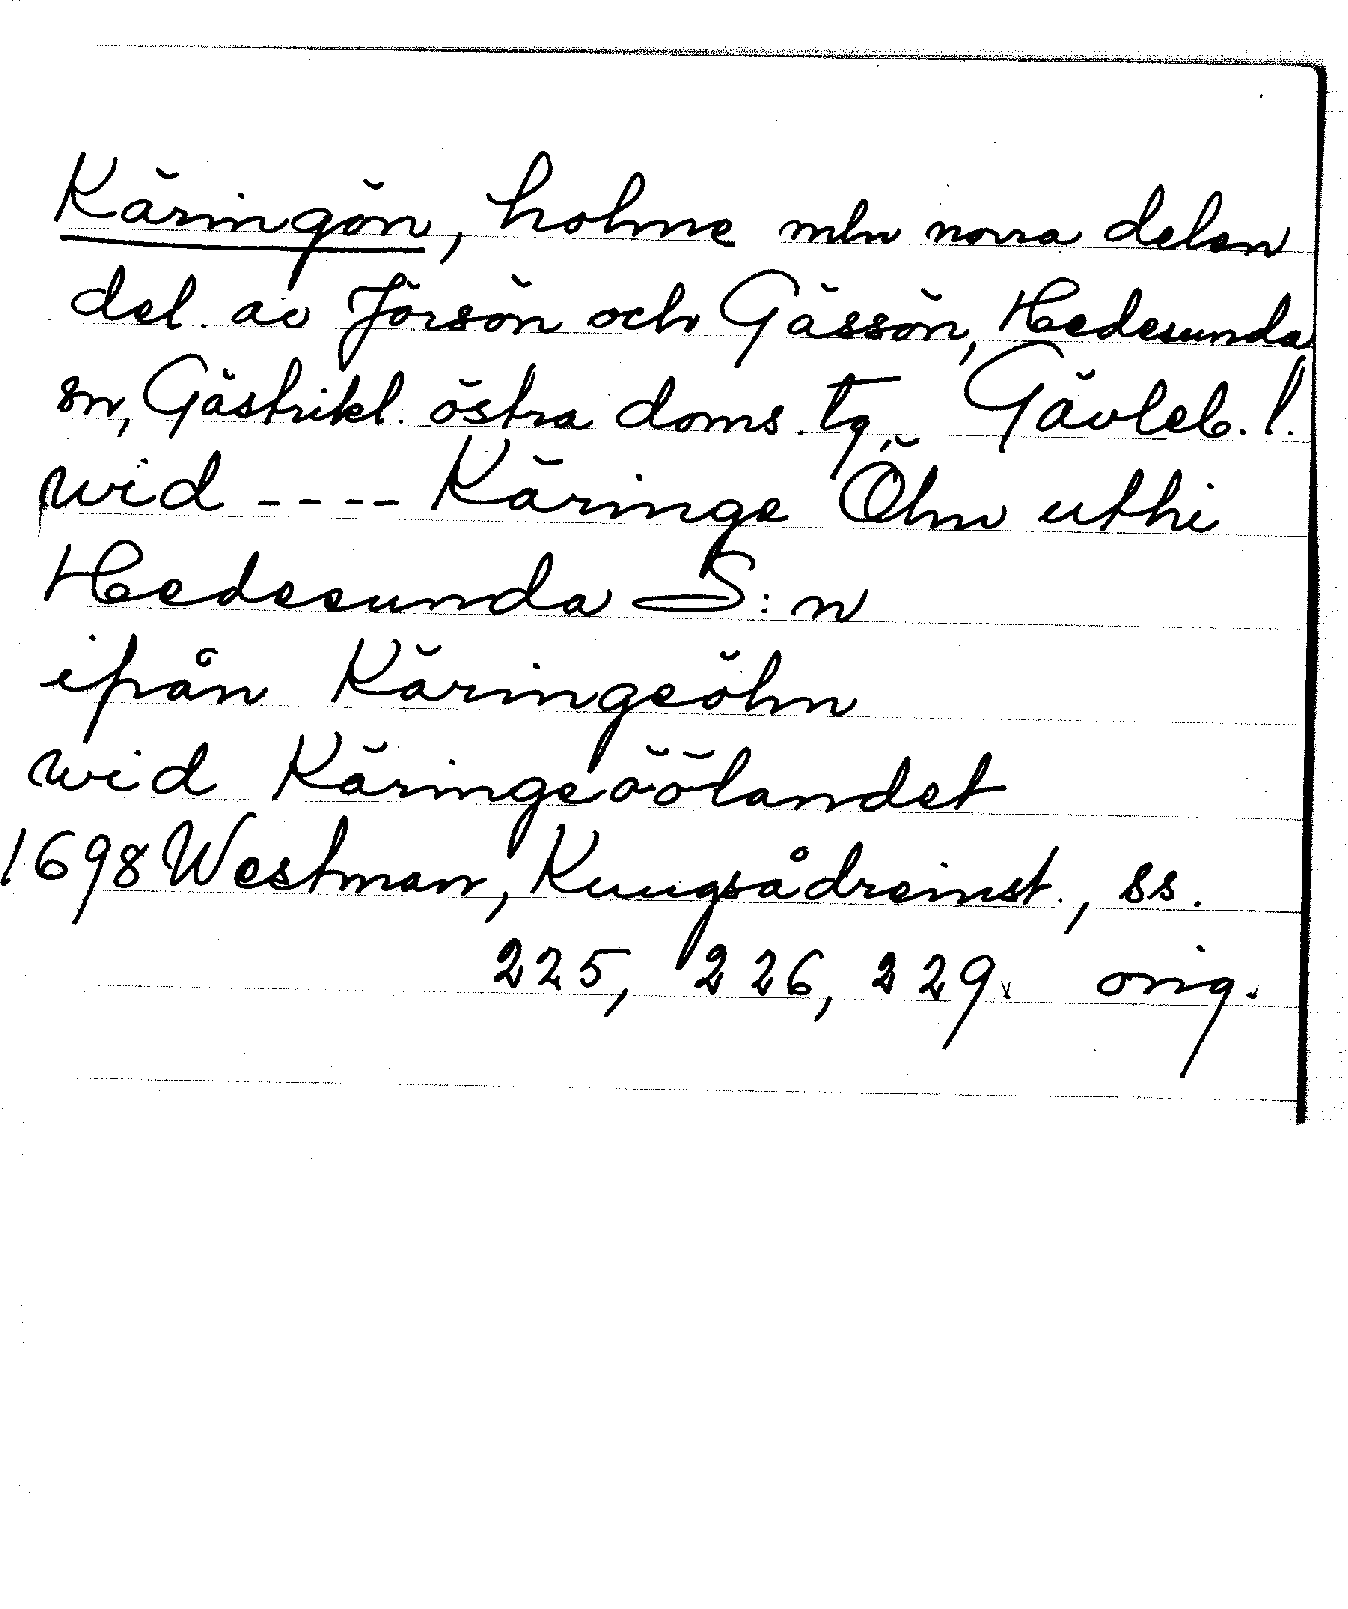 Käringön, holme mln norra delen
del. av Jörsön och Gässön, Hedesunda
sn, Gästrikl. östra doms. tg, Gävleb. l.
wid ---- Käringe Öhn uthi
Hedesunda S:n
ifrån Käringeöhn
wid Käringeöölandet
1698 Westman, Kungsådreinst., ss.
225, 226, 229. orig.